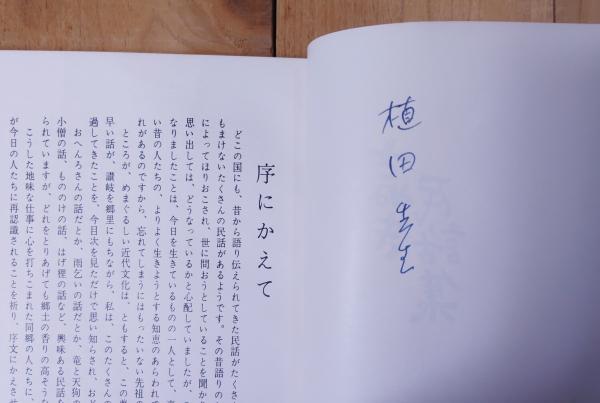 植田
序にかえて
どこの国にも、昔から語り伝えられてきた民話がたくさ
もまけないたくさんの民話があるようです。その昔語りの
によってほりおこされ、世に問おうとしていることを聞か
思い出しては、どうなっているかと心配していましたが、
なりましたことは、今日を生きているものの一人として、
い昔の人たちの、よりよく生きようとする知恵のあらわれで
れがあるのですから、忘れてしまうにはもったいない先祖の
ところが、めまぐるしい近代文化は、ともすると、この
早い話が、讃岐を郷里にもちながら、私は、このたくさんの
過してきたことを、今目次を見ただけで思い知らされ、おど
おへんろさんの話だとか、雨乞いの話だとか、竜と天狗の
小僧の話、もののけの話、はげ狸の話など、興味ある民話を
られていますが、どれをとりあげても郷土の香りの高そうな
こうした地味な仕事に心を打ちこまれた同郷の人たちに、
が今日の人たちに再認識されることを祈り、序文にかえさせ